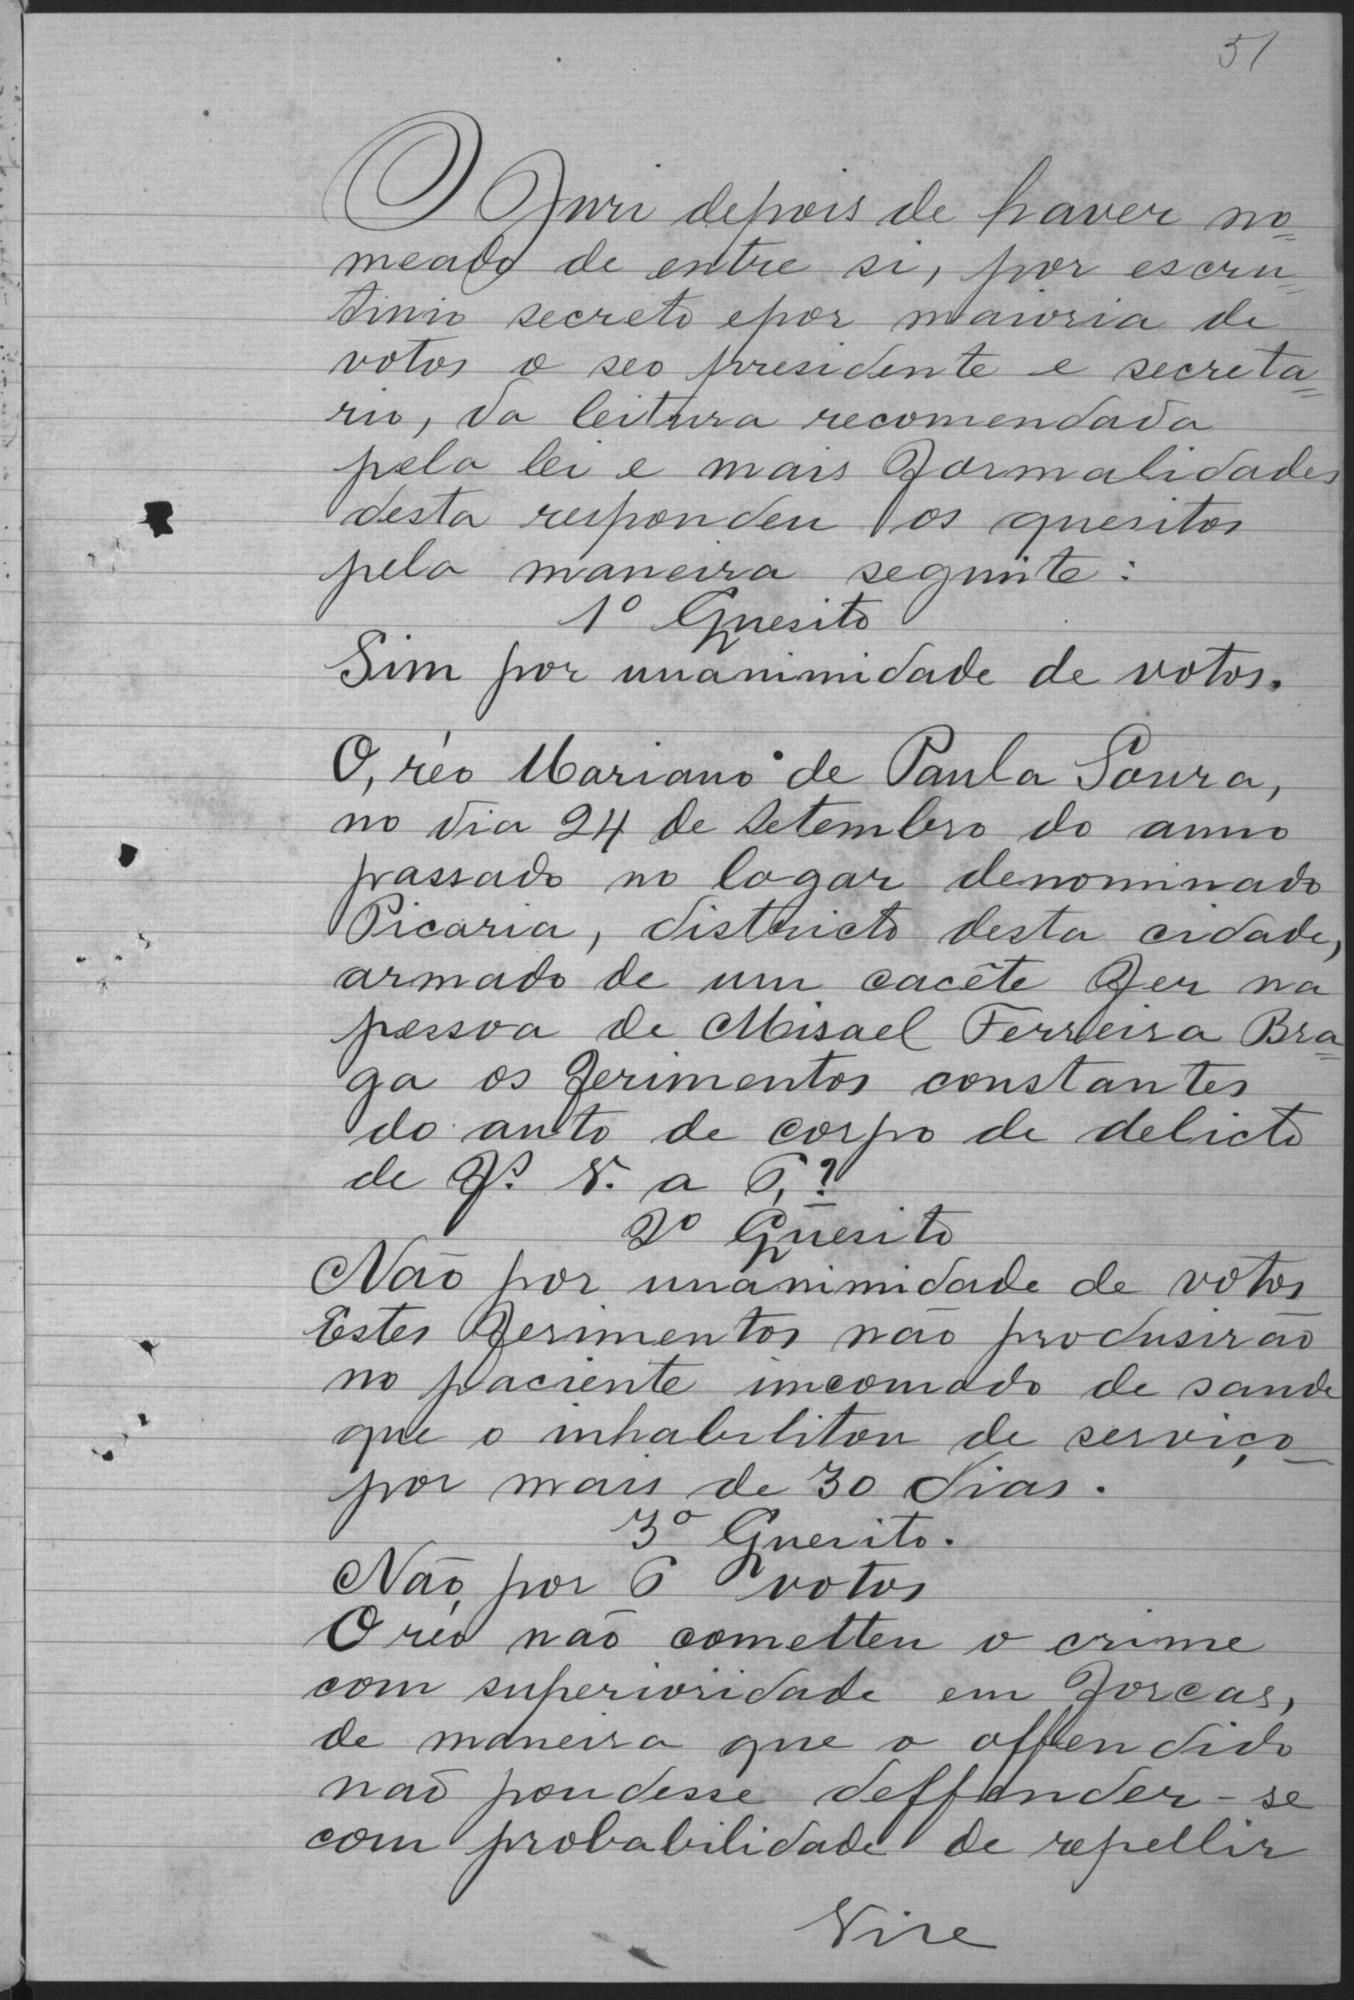 51
O Juri depois de haver no=
meado de entre si, por escru=
tinio secreto e por maioria de
votos o seo presidente e secreta=
rio, da leitura recomendada
pela lei e mais formalidades
desta respondeu os quesitos
pela maneira seguinte:
1º Quesito
Sim por unanimidade de votos.
O, réo Mariano de Paula Soura,
no dia 24 de Setembro do anno
passado no logar denominado
Picaria, districto desta cidade,
armado de um cacête fer na
pessoa de Misael Ferreira Bra=
ga os ferimentos constantes
do auto de corpo de delicto
de fs. V. a 6,?
2º Quesito
Não por unanimidade de votos
Estes ferimentos não produsirão
no paciente imcomodo de saude
que o inhabilitou de serviço
por mais de 30 dias.
3º Quesito.
Não, por 6 votos
O réo não cometteu o crime
com superioridade em forcas,
de maneira que o offendido
não poudesse deffender-se
com probabilidade de repellir
Vire